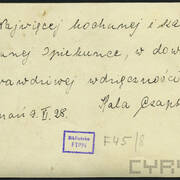 Najwięcej kochanej i sza
nej Opiekunce, w dow
rawdziwej wdzięczności
nań 9. VI. 28. Hala Czaps
Biblioteka
PTPN
F45/8
CYR